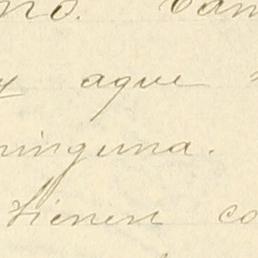 no. Tam
y aque
ninguna.
tienen co